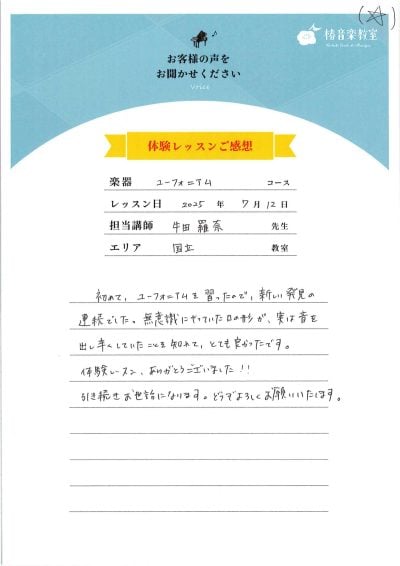 (☆)
椿音楽教室
お客様の声を
お聞かせください
Voice
体験レッスンご感想
楽器 ユーフォニアム コース
レッスン日 2025 年 7 月 12 日
担当講師 牛田 羅奈 先生
エリア 国立 教室
初めて、ユーフォニアムを習ったので、新しい発見の
連続でした。無意識にやっていた口の形が、実は音を
出し辛くしていたことを知れて、とても良かったです。
体験レッスン、ありがとうございました!!
引き続きお世話になります。どうぞよろしくお願いいたします。